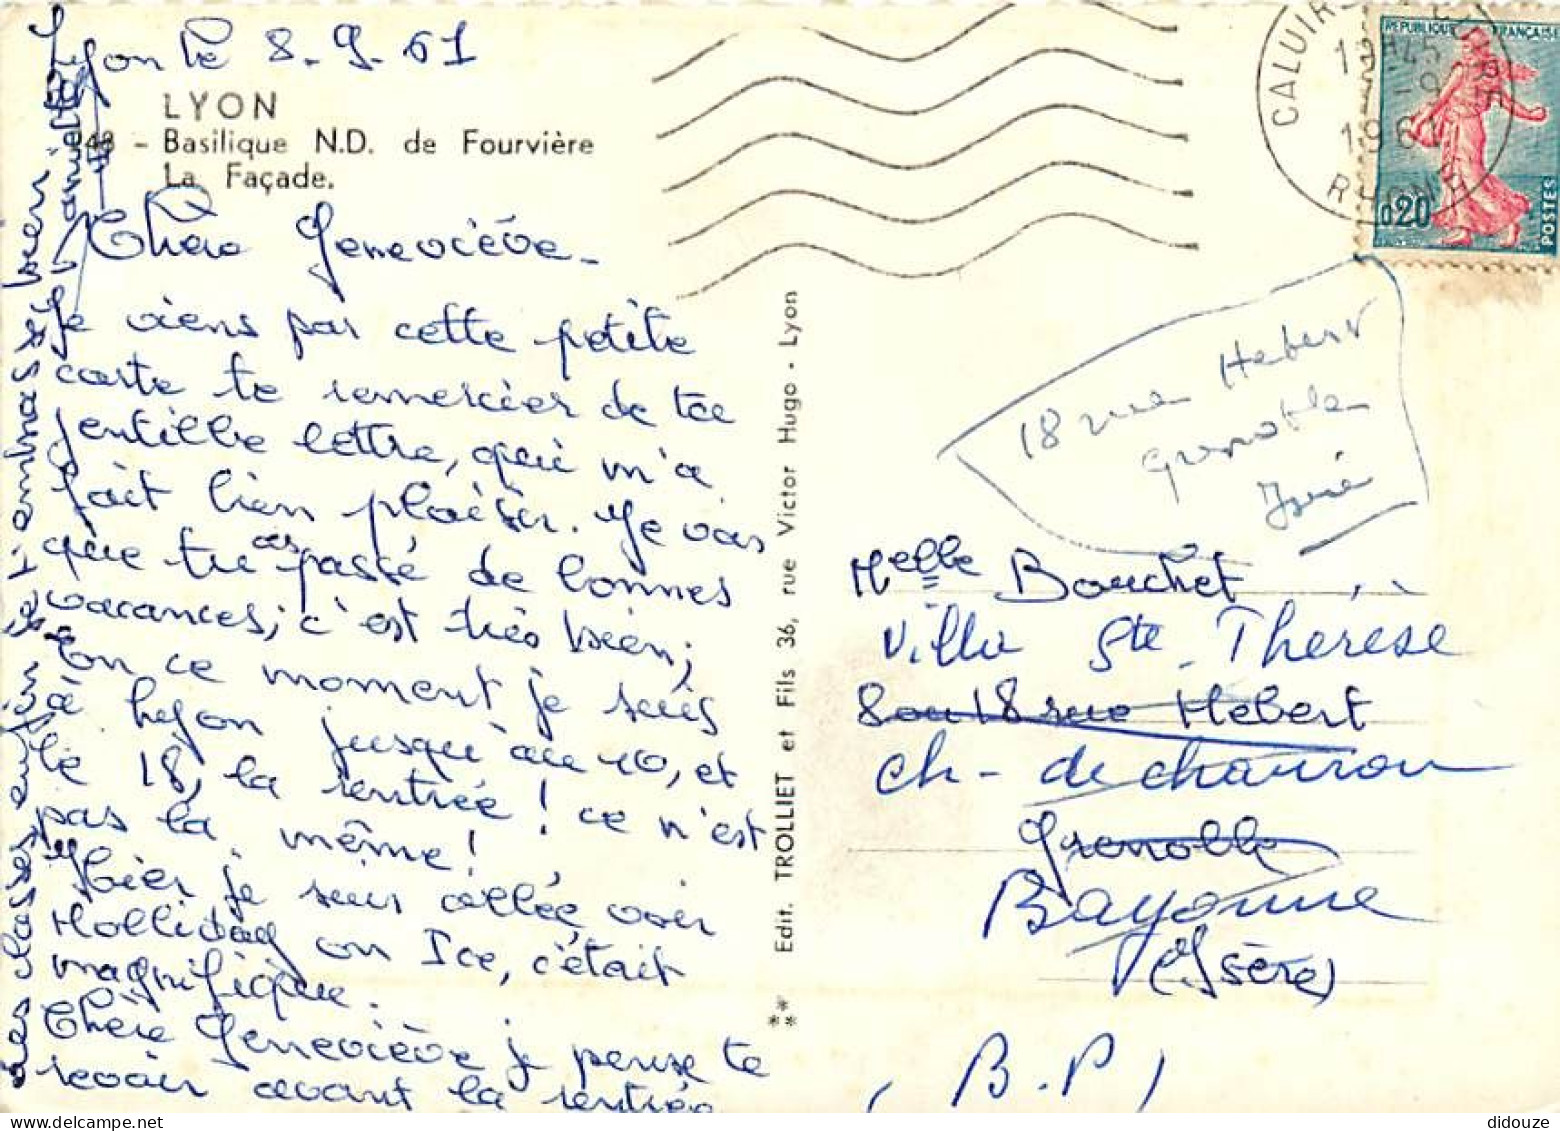 Lyon le 8-9-61
LYON
148 - Basilique N.D. de Fourvière
La Façade.
Chère Geneviève -
Je viens par cette petite
carte te remercier de ta
gentille lettre, qui m'a
fait bien plaisir. Je vois
que tu as passé de bonnes
vacances, c'est très bien;
En ce moment je suis
à Lyon jusqu'au 10, et
le 18, la rentrée! ce n'est
pas la même!
Hier je suis allée voir
Holliday on Ice, c'était
magnifique.
Chère Geneviève je pense te
revoir avant la rentrée
des classes enfin je t'embrasse bien
Danielle
Edit. TROLLIET et Fils 36, rue Victor Hugo - Lyon
CALUIRE
13H45
-9
1961
RHONE
REPUBLIQUE FRANÇAISE
0,20
POSTES
18 rue Hebert
Grenoble
Isère
Melle Bouchet
Villa Ste Thérèse
8 ou 18 rue Hebert
ch - de chauron
Grenoble
Bayonne
(Isère)
(B.P)
didouze